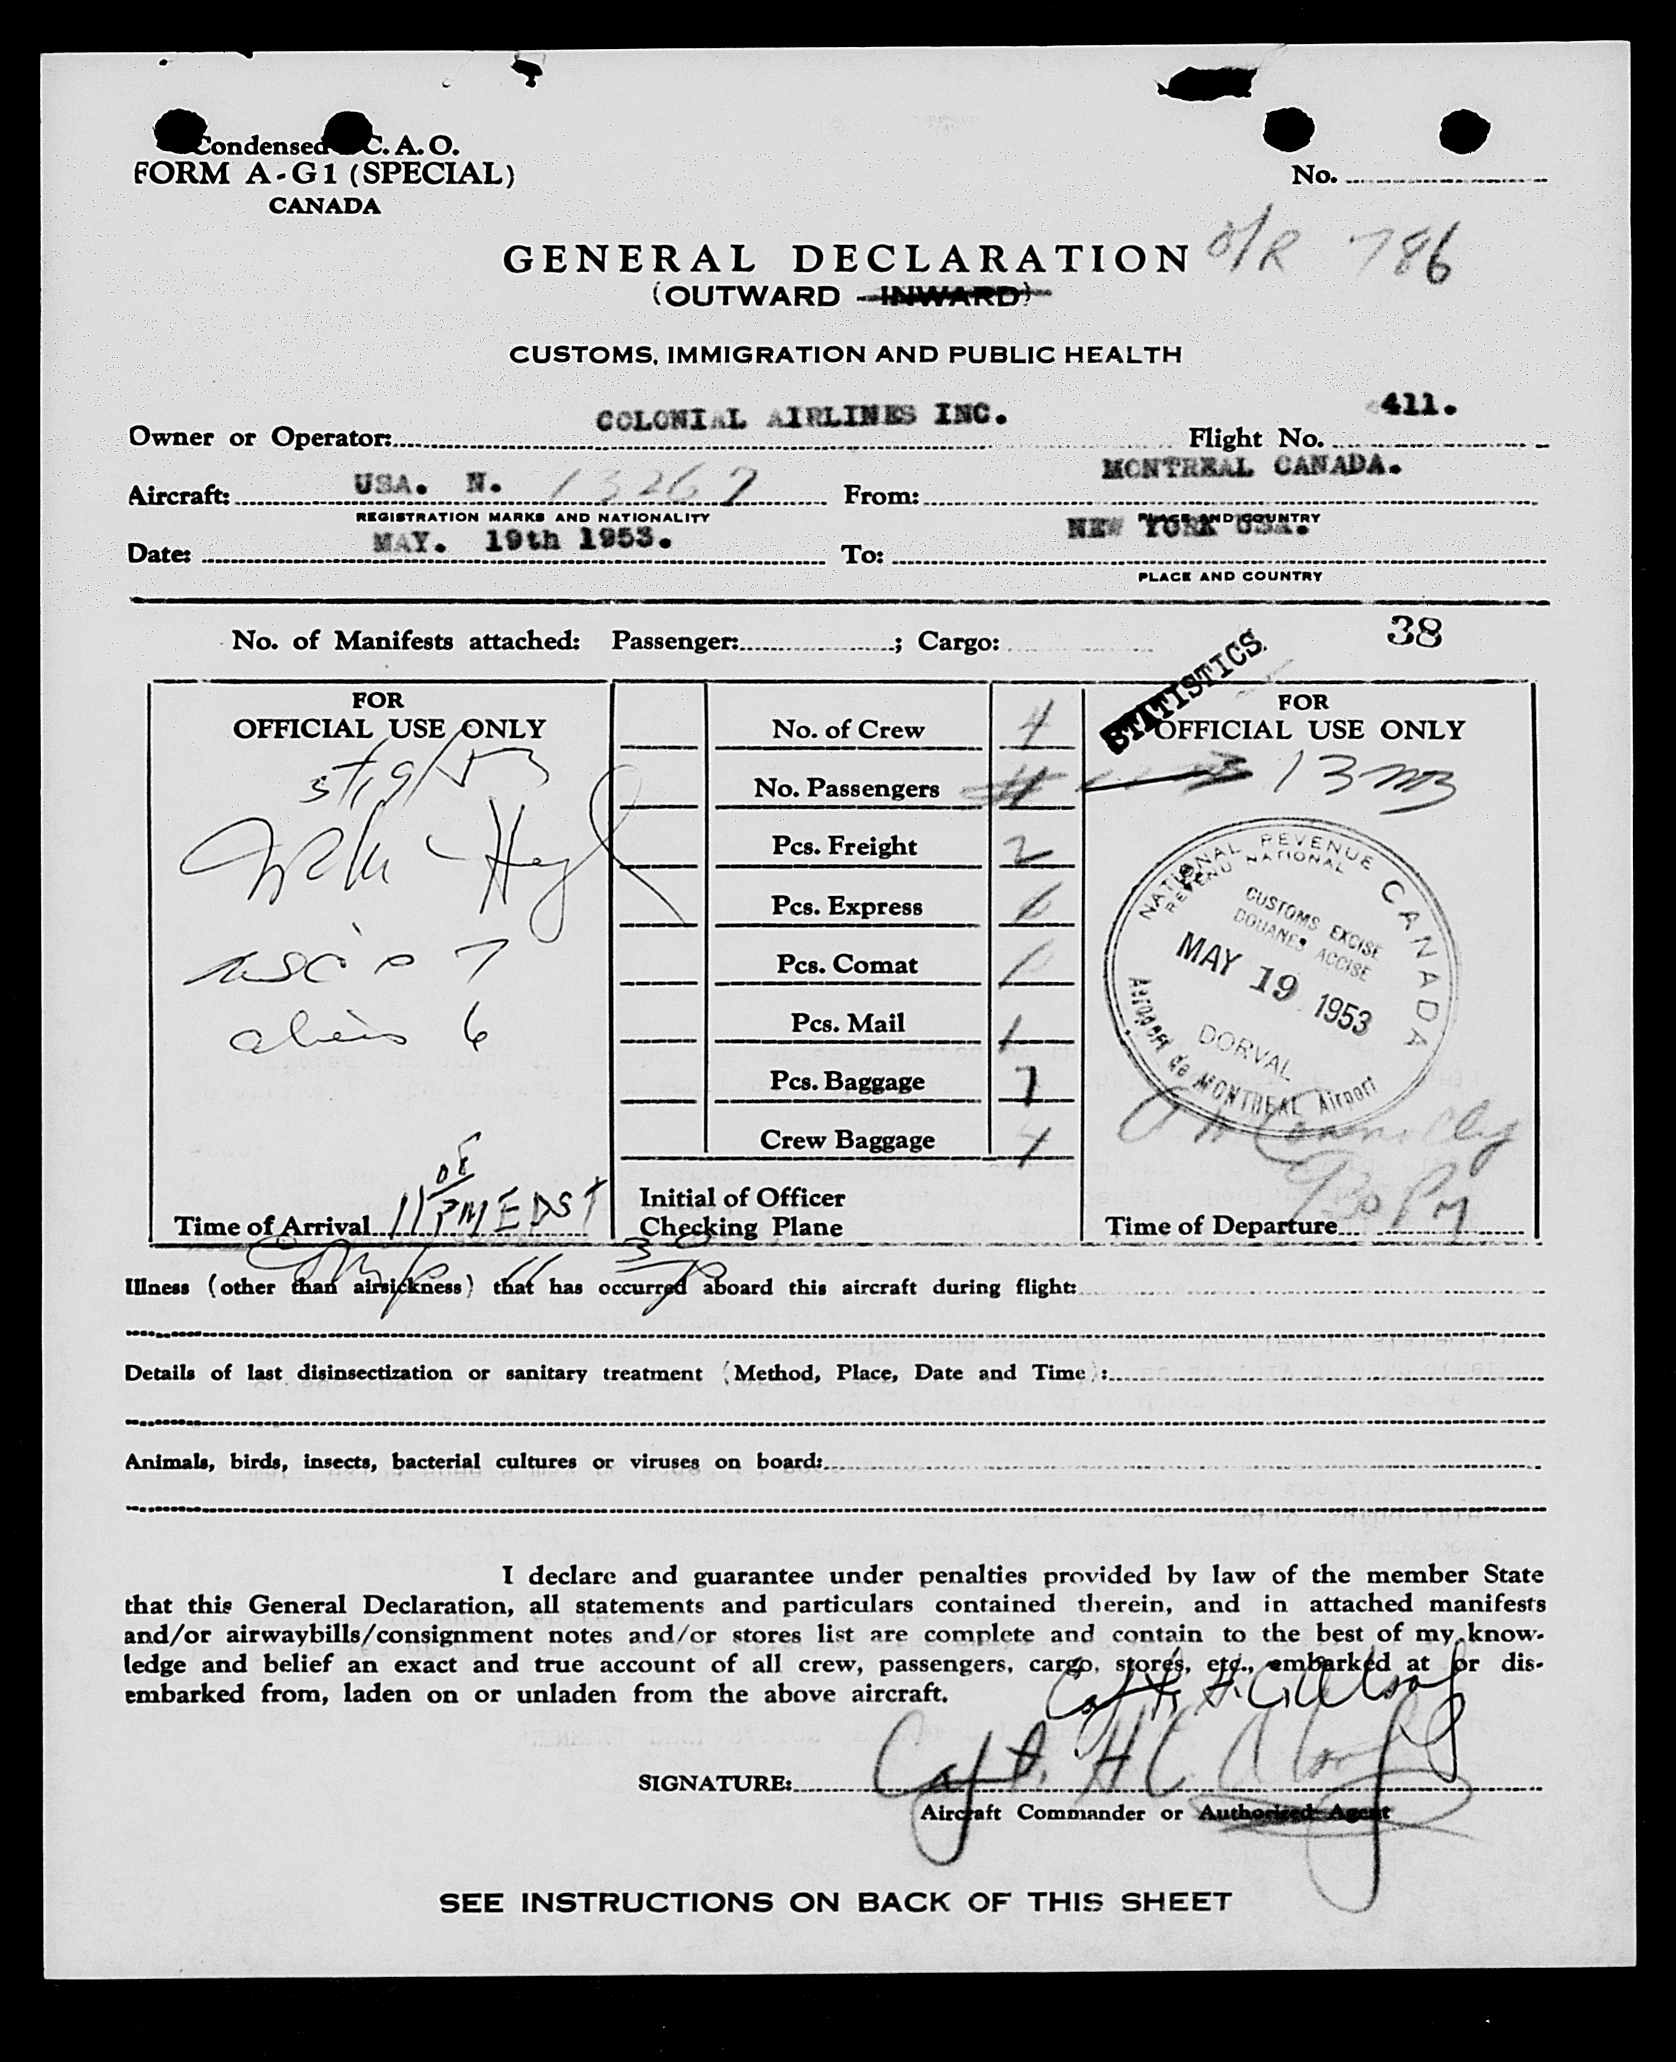 Condensed C. A. O.
FORM A-G1 (SPECIAL)
CANADA
No.
O/R 786
GENERAL DECLARATION
(OUTWARD - INWARD)
CUSTOMS, IMMIGRATION AND PUBLIC HEALTH
Owner or Operator: COLONIAL AIRLINES INC. Flight No. 411.
Aircraft: USA. N. 13267 From: MONTREAL CANADA.
REGISTRATION MARKS AND NATIONALITY PLACE AND COUNTRY
Date: MAY. 19th 1953. To: NEW YORK USA.
PLACE AND COUNTRY
No. of Manifests attached: Passenger: ; Cargo: 38
STATISTICS
FOR
OFFICIAL USE ONLY
5/19/53
7
aliens 6
Time of Arrival 11 08 PM EDST
No. of Crew 4
No. Passengers 13
Pcs. Freight 2
Pcs. Express
Pcs. Comat
Pcs. Mail 1
Pcs. Baggage 7
Crew Baggage 4
Initial of Officer
Checking Plane
FOR
OFFICIAL USE ONLY
NATIONAL REVENUE CANADA
REVENU NATIONAL
CUSTOMS EXCISE
DOUANES ACCISE
MAY 19 1953
DORVAL
Aéroport de MONTREAL Airport
Connolly
Time of Departure
Illness (other than airsickness) that has occurred aboard this aircraft during flight:
Details of last disinsectization or sanitary treatment (Method, Place, Date and Time):
Animals, birds, insects, bacterial cultures or viruses on board:
I declare and guarantee under penalties provided by law of the member State
that this General Declaration, all statements and particulars contained therein, and in attached manifests
and/or airwaybills/consignment notes and/or stores list are complete and contain to the best of my know-
ledge and belief an exact and true account of all crew, passengers, cargo, stores, etc., embarked at or dis-
embarked from, laden on or unladen from the above aircraft.
SIGNATURE: Capt. H C
Aircraft Commander or Authorized Agent
SEE INSTRUCTIONS ON BACK OF THIS SHEET